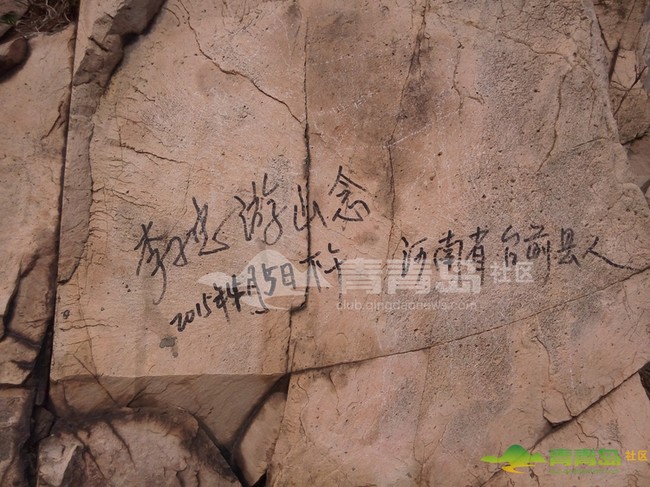 游山念 河南省台前县人
2015年4月5日
青青岛社区
club.qingdaonews.com
青青岛社区